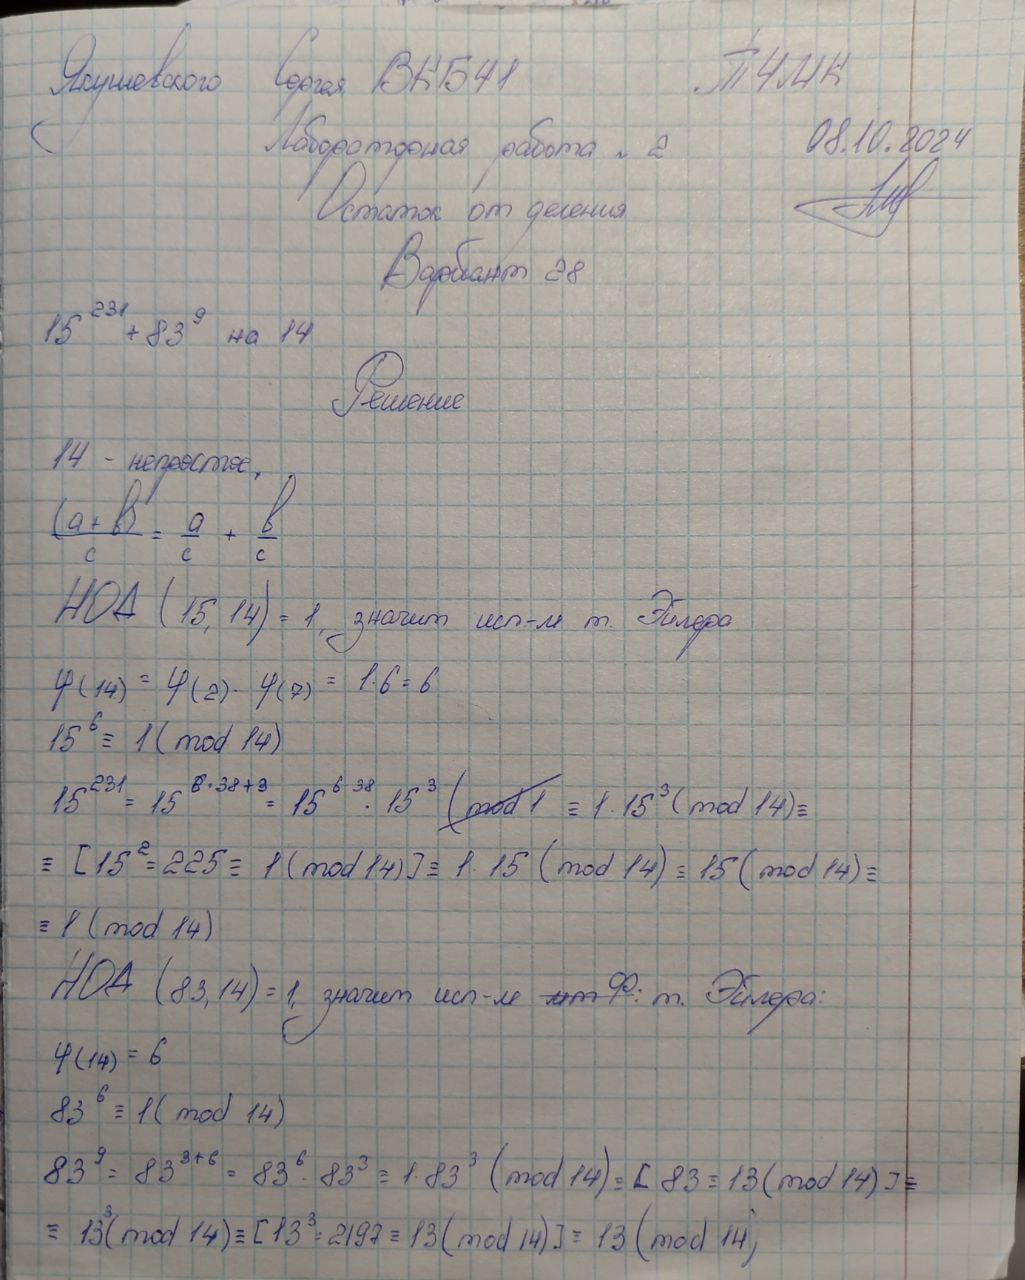 Якушевского Сергея ВКБ41 ТЧМК
Лабораторная работа № 2 08.10.2024
Остаток от деления
Вариант 28
15^231 + 83^9 на 14
Решение
14 - непростое,
(a+b)/c = a/c + b/c
НОД (15, 14) = 1, значит исп-м т. Эйлера
φ(14) = φ(2) · φ(7) = 1·6 = 6
15^6 ≡ 1 (mod 14)
15^231 = 15^(6·38+3) = 15^(6·38) · 15^3 (mod 1 ≡ 1·15^3 (mod 14) ≡
≡ [15^2 = 225 ≡ 1 (mod 14)] ≡ 1·15 (mod 14) ≡ 15 (mod 14) ≡
≡ 1 (mod 14)
НОД (83, 14) = 1, значит исп-м т. Эйлера:
φ(14) = 6
83^6 ≡ 1 (mod 14)
83^9 = 83^(3+6) = 83^6 · 83^3 ≡ 1·83^3 (mod 14) ≡ [83 ≡ 13 (mod 14)] ≡
≡ 13^3 (mod 14) ≡ [13^3 = 2197 ≡ 13 (mod 14)] ≡ 13 (mod 14)